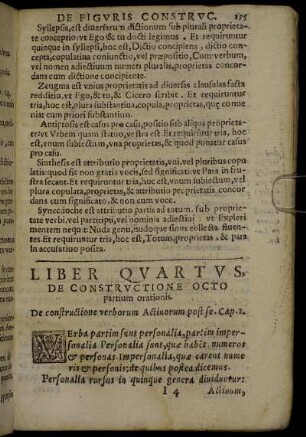 DE FIGVRIS CONSTRVC. 135
Syllepsis, est diuersarum dictionum sub plurali proprieta-
te conceptio vt Ego & tu docti legimus, Et requiruntur
quinque in syllepsi, hoc est, Dictio concipiens, dictio con-
cepta, copulatiua coniunctio, vel præpositio, Cum verbum,
vel nomen adiectiuum numeri pluralis, proprietas concor-
dans cum dictione concipiente.
Zeugma est vnius proprietatis ad diuersas clausulas facta
redditio, vt Ego, & tu, & Cicero scribit. Et requiruntur
tria, hoc est, plura substantiua, copula, proprietas, quæ conue
niat cum priori substantiuo.
Antiptosis est casus pro casu, positio sub aliqua proprieta-
te vt Vrbem quam statuo, vestra est Et requiruntur tria, hoc
est, vnum subiectum, vna proprietas, & quod ponatur casus
pro casu.
Sinthesis est attributio proprietatis, vni, vel pluribus copu
latis: quod fit non gratia vocis, sed significati: vt Pars in fru-
stra secant. Et requiruntur tria, hoc est, vnum subiectum, vel
plura copulata, proprietas, & attributio proprietatis, concor-
dans cum significato, & non cum voce.
Synecdoche est attributio partis ad totum, sub proprie-
tate verbi, vel participi, vel nominis adiectiui: vt Expleri
mentem nequit Nuda genu, nodoque sinus collecta fluen-
tes Et requiruntur tria, hoc est, Totum, proprietas, & pars
in accusatiuo posita.
LIBER QVARTVS,
DE CONSTRVCTIONE OCTO
partium orationis.
De constructione verborum Actiuorum post se. Cap. 1.
VErba partim sunt personalia, partim imper-
sonalia Personalia sunt, quæ habēt numeros
& personas Impersonalia, quæ carent nume
ris & personis: de quibus postea dicemus.
Personalia rursus in quinque genera diuiduntur:
I 4 Actiuum,